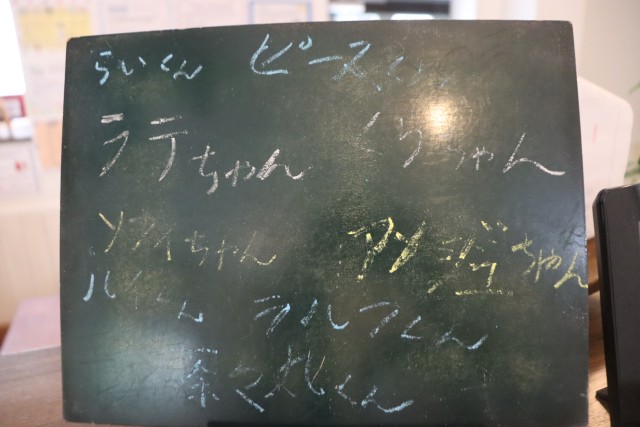 らいくん ピースくん
ラテちゃん くうちゃん
ソフィちゃん アンジェちゃん
ルイくん ラルフくん
茶々丸くん